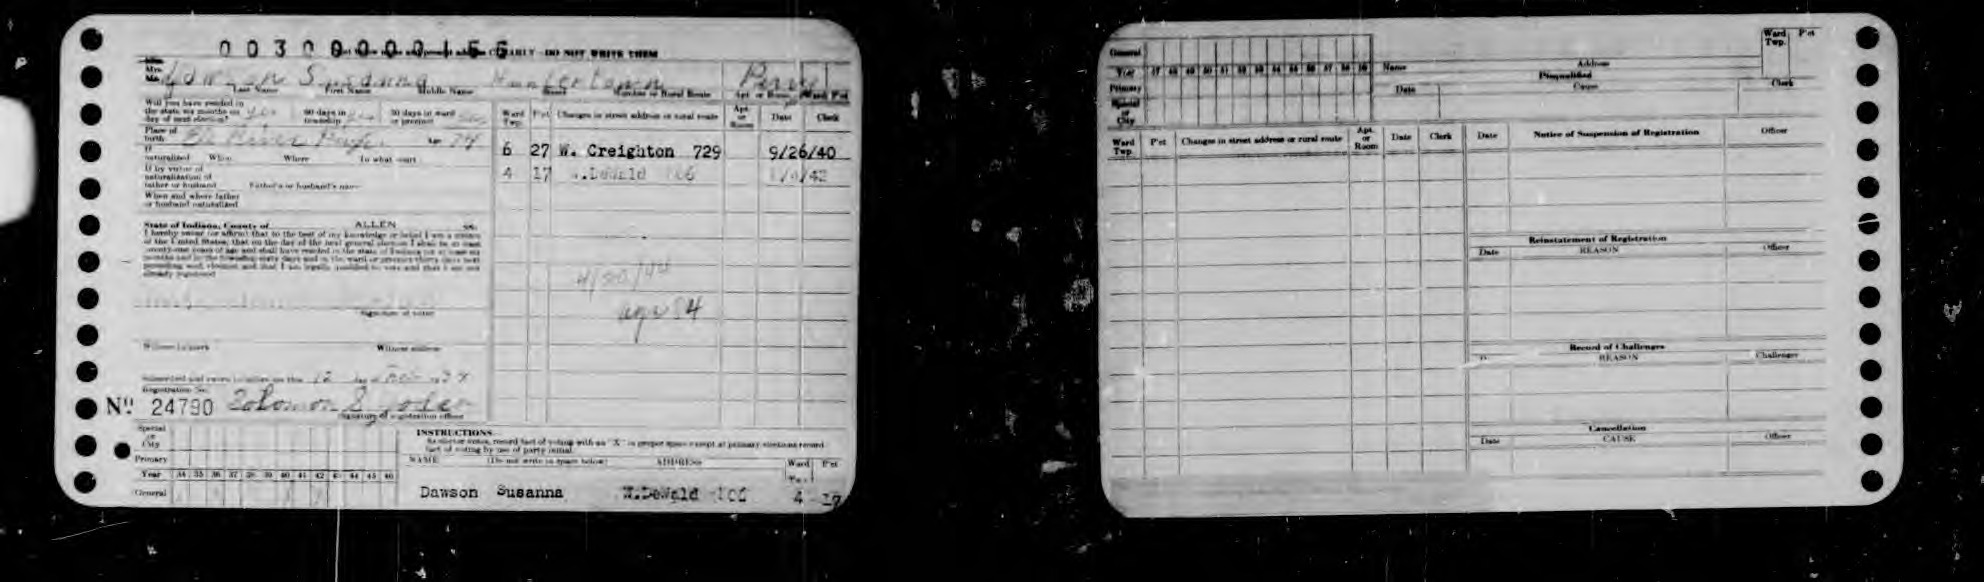 0030000015
CLEARLY - DO NOT WRITE THEM
Mrs. Dawson Susanna Huntertown Perry
Last Name First Name Middle Name Street Number or Rural Route Apt. or Room Ward P'ct
Will you have resided in
the state six months on
day of next election? yes 60 days in township 30 days in ward or precinct
Place of birth Age 74
If naturalized When Where To what court
If by virtue of
naturalization of
father or husband Father's or husband's name
When and where father
or husband naturalized
State of Indiana, County of ALLEN ss:
I hereby swear (or affirm) that to the best of my knowledge or belief I am a citizen
of the United States; that on the day of the next general election I shall be at least
twenty-one years of age and shall have resided in the state of Indiana for at least six
months and in the township sixty days and in the ward or precinct thirty days next
preceding said election and that I am legally qualified to vote and that I am not
already registered
Signature of voter
Witness to mark Witness address
Subscribed and sworn to before me this 12 day of
Registration No.
No 24790 Solomon S Yoder
Signature of registration officer
Ward Twp. P'ct Changes in street address or rural route Apt. or Room Date Clerk
6 27 W. Creighton 729 9/26/40
4 17 W.DeWald 106
4/20/44
age 84
Special or City
Primary
Year 34 35 36 37 38 39 40 41 42 43 44 45 46
General
INSTRUCTIONS
As elector votes, record fact of voting with an "X" in proper space except at primary elections record
fact of voting by use of party initial.
NAME (Do not write in space below) ADDRESS Ward Tw. P'ct
Dawson Susanna W.DeWald 106 4 17
General
Year 47 48 49 50 51 52 53 54 55 56 57 58 59
Primary
Special or City
Name Address Ward Twp. P'ct
Disqualified
Date Cause Clerk
Ward Twp. P'ct Changes in street address or rural route Apt. or Room Date Clerk
Date Notice of Suspension of Registration Officer
Reinstatement of Registration
Date REASON Officer
Record of Challenges
REASON Challenger
Cancellation
Date CAUSE Officer